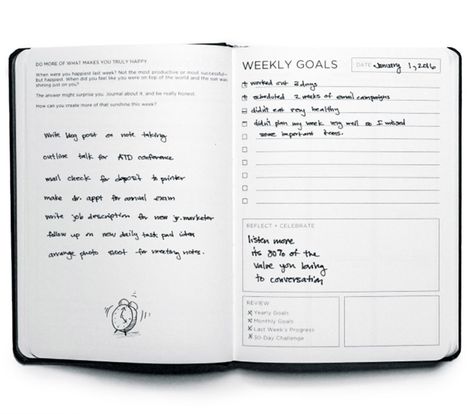 DO MORE OF WHAT MAKES YOU TRULY HAPPY
When were you happiest last week? Not the most productive or most successful—
but happiest. When did you feel like you were on top of the world and the sun was
shining just on you?
The answer might surprise you. Journal about it, and be really honest.
How can you create more of that sunshine this week?
write blog post on note taking
outline talk for ATD conference
mail check for deposit to printer
make dr. appt for annual exam
write job description for new jr. marketer
follow up on new daily task pad idea
arrange photo shoot for meeting notes.
WEEKLY GOALS
DATE January 1, 2016
+ worked out 3 days
+ scheduled 2 weeks of email campaigns
- didn't eat very healthy
- didn't plan my week very well so I missed
some important items.
REFLECT + CELEBRATE
listen more
its 80% of the
value you bring
to conversation
REVIEW
x Yearly Goals
x Monthly Goals
x Last Week's Progress
x 30-Day Challenge